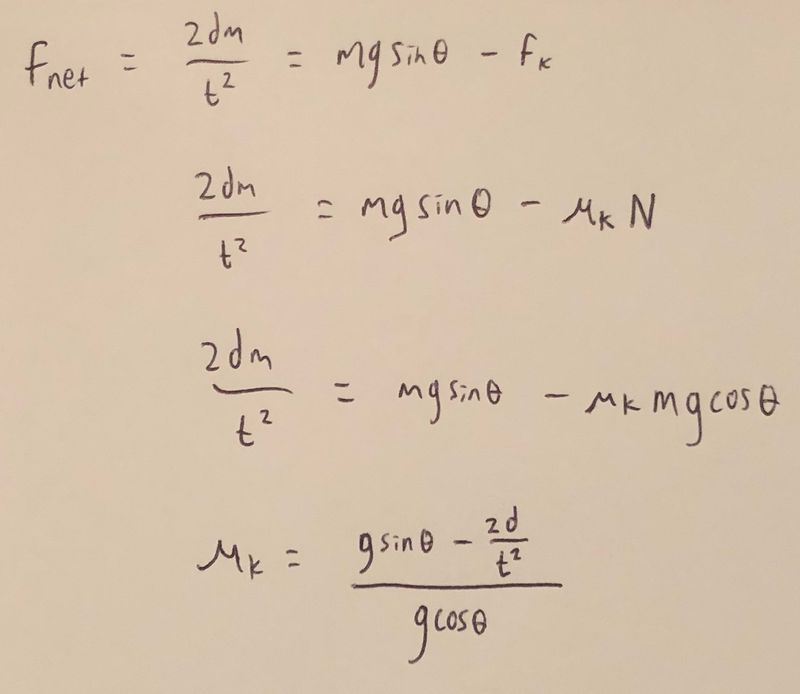 Fnet = 2dm/t² = mg sinθ - fk
2dm/t² = mg sinθ - μk N
2dm/t² = mg sinθ - μk mg cosθ
μk = (g sinθ - 2d/t²)/(g cosθ)